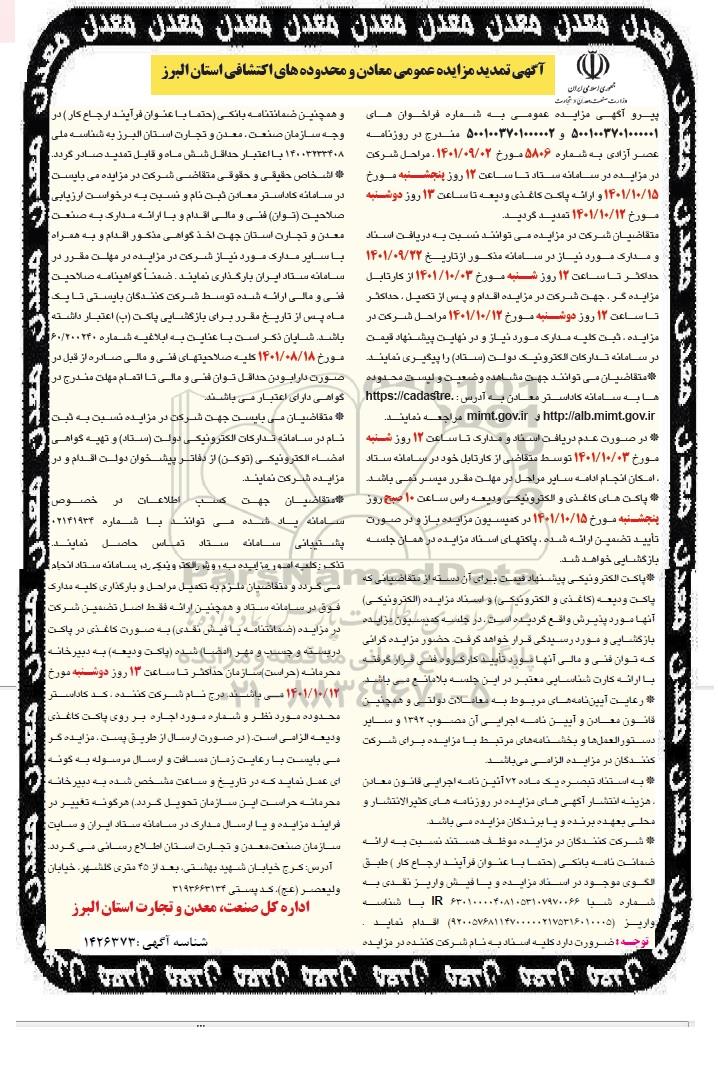 معدن معدن معدن معدن معدن معدن معدن معدن
جمهوری اسلامی ایران
وزارت صنعت، معدن و تجارت
آگهی تمدید مزایده عمومی معادن و محدوده های اکتشافی استان البرز
پیرو آگهی مزایده عمومی به شماره فراخوان های
۵۰۰۱۰۰۳۷۰۱۰۰۰۰۰۱ و ۵۰۰۱۰۰۳۷۰۱۰۰۰۰۰۲ مندرج در روزنامه
عصر آزادی به شماره ۵۸۰۶ مورخ ۱۴۰۱/۰۹/۰۲ ، مراحل شرکت
در مزایده در سامانه ستاد تا ساعت ۱۲ روز پنجشنبه مورخ
۱۴۰۱/۱۰/۱۵ و ارائه پاکت کاغذی ودیعه تا ساعت ۱۳ روز دوشنبه
مورخ ۱۴۰۱/۱۰/۱۲ تمدید گردید.
متقاضیان شرکت در مزایده می توانند نسبت به دریافت اسناد
و مدارک مورد نیاز در سامانه مذکور ازتاریخ ۱۴۰۱/۰۹/۲۲
حداکثر تا ساعت ۱۲ روز شنبه مورخ ۱۴۰۱/۱۰/۰۳ از کارتابل
مزایده گر ، جهت شرکت در مزایده اقدام و پس از تکمیل ، حداکثر
تا ساعت ۱۲ روز دوشنبه مورخ ۱۴۰۱/۱۰/۱۲ مراحل شرکت در
مزایده ، ثبت کلیه مدارک مورد نیاز و در نهایت پیشنهاد قیمت
در سامانه تدارکات الکترونیک دولت (ستاد) را پیگیری نمایند.
※متقاضیان می توانند جهت مشاهده وضعیت و لیست محدوده
ها به سامانه کاداستر معادن به آدرس : https://cadastre.
mimt.gov.ir و http://alb.mimt.gov.ir مراجعه نمایند.
※ در صورت عدم دریافت اسناد و مدارک تا ساعت ۱۲ روز شنبه
مورخ ۱۴۰۱/۱۰/۰۳ توسط متقاضی از کارتابل خود در سامانه ستاد
، امکان انجام ادامه سایر مراحل در مهلت مقرر میسر نمی باشد.
※ پاکت های کاغذی و الکترونیکی ودیعه راس ساعت ۱۰ صبح روز
پنجشنبه مورخ ۱۴۰۱/۱۰/۱۵ در کمیسیون مزایده باز و در صورت
تأیید تضمین ارائه شده ، پاکتهای اسناد مزایده در همان جلسه
بازگشایی خواهد شد.
※پاکت الکترونیکی پیشنهاد قیمت برای آن دسته از متقاضیانی که
پاکت ودیعه (کاغذی و الکترونیکی) و اسناد مزایده (الکترونیکی)
آنها مورد پذیرش واقع گردیده است ، در جلسه کمیسیون مزایده
بازگشایی و مورد رسیدگی قرار خواهد گرفت. حضور مزایده گرانی
که توان فنی و مالی آنها مورد تأیید کارگروه فنی قرار گرفته
با ارائه کارت شناسایی معتبر در این جلسه بلامانع می باشد.
※ رعایت آیین‌نامه‌های مربوط به معاملات دولتی و همچنین
قانون معادن و آیین نامه اجرایی آن مصوب ۱۳۹۲ و سایر
دستورالعمل‌ها و بخشنامه‌های مرتبط با مزایده برای شرکت
کنندگان در مزایده الزامی می‌باشد.
※ به استناد تبصره یک ماده ۷۲ آئین نامه اجرایی قانون معادن
، هزینه انتشار آگهی های مزایده در روزنامه های کثیرالانتشار و
محلی بعهده برنده و یا برندگان مزایده می باشد.
※ شرکت کنندگان در مزایده موظف هستند نسبت به ارائه
ضمانت نامه بانکی (حتما با عنوان فرآیند ارجاع کار ) طبق
الگوی موجود در اسناد مزایده و یا فیش واریز نقدی به
شماره شبا IR ۶۳۰۱۰۰۰۰۴۰۸۱۰۵۳۱۰۷۹۷۰۰۶۶ با شناسه
واریز (۹۲۰۰۵۷۶۸۱۱۴۷۰۰۰۰۰۲۱۷۵۳۱۶۰۱۰۰۰۵) اقدام نماید .
توجه : ضرورت دارد کلیه اسناد به نام شرکت کننده در مزایده
و همچنین ضمانتنامه بانکی (حتما با عنوان فرآیند ارجاع کار) در
وجه سازمان صنعت ، معدن و تجارت استان البرز به شناسه ملی
۱۴۰۰۳۲۳۳۴۰۸ با اعتبار حداقل شش ماه و قابل تمدید صادر گردد.
※ اشخاص حقیقی و حقوقی متقاضی شرکت در مزایده می بایست
در سامانه کاداستر معادن ثبت نام و نسبت به درخواست ارزیابی
صلاحیت (توان) فنی و مالی اقدام و با ارائه مدارک به صنعت
معدن و تجارت استان جهت اخذ گواهی مذکور اقدام و به همراه
با سایر مدارک مورد نیاز شرکت در مزایده در مهلت مقرر در
سامانه ستاد ایران بارگذاری نمایند . ضمناً گواهینامه صلاحیت
فنی و مالی ارائه شده توسط شرکت کنندگان بایستی تا یک
ماه پس از تاریخ مقرر برای بازگشایی پاکت (ب) اعتبار داشته
باشد. شایان ذکر است با عنایت به ابلاغیه شماره ۶۰/۲۰۰۲۴۰
مورخ ۱۴۰۱/۰۸/۱۸ کلیه صلاحیتهای فنی و مالی صادره از قبل در
صورت دارابودن حداقل توان فنی و مالی تا اتمام مهلت مندرج در
گواهی دارای اعتبار می باشند.
※ متقاضیان می بایست جهت شرکت در مزایده نسبت به ثبت
نام در سامانه تدارکات الکترونیکی دولت (ستاد) و تهیه گواهی
امضاء الکترونیکی (توکن) از دفاتر پیشخوان دولت اقدام و در
مزایده شرکت نمایند.
※متقاضیان جهت کسب اطلاعات در خصوص
سامانه یاد شده می توانند با شماره ۰۲۱۴۱۹۳۴
پشتیبانی سامانه ستاد تماس حاصل نمایند.
تذکر : کلیه امور مزایده به روش الکترونیکی در سامانه ستاد انجام
می گردد و متقاضیان ملزم به تکمیل مراحل و بارگذاری کلیه مدارک
فوق در سامانه ستاد و همچنین ارائه فقط اصل تضمین شرکت
در مزایده (ضمانتنامه یا فیش نقدی) به صورت کاغذی در پاکت
دربسته و چسب و مهر (امضا) شده (پاکت ودیعه) به دبیرخانه
محرمانه (حراست)سازمان حداکثر تا ساعت ۱۳ روز دوشنبه مورخ
۱۴۰۱/۱۰/۱۲ می باشند. درج نام شرکت کننده ، کد کاداستر
محدوده مورد نظر و شماره مورد اجاره بر روی پاکت کاغذی
ودیعه الزامی است. ( در صورت ارسال از طریق پست ، مزایده گر
می بایست با رعایت زمان مسافت و ارسال مرسوله به گونه
ای عمل نماید که در تاریخ و ساعت مشخص شده به دبیرخانه
محرمانه حراست این سازمان تحویل گردد.) هرگونه تغییر در
فرایند مزایده و یا ارسال مدارک در سامانه ستاد ایران و سایت
سازمان صنعت،معدن و تجارت استان اطلاع رسانی می گردد.
آدرس: کرج خیابان شهید بهشتی، بعد از ۴۵ متری گلشهر، خیابان
ولیعصر (عج)، کد پستی ۳۱۹۳۶۶۳۱۳۴
اداره کل صنعت، معدن و تجارت استان البرز
شناسه آگهی : ۱۴۲۶۳۷۳
ParsNamadData
پایگاه اطلاع رسانی مناقصه و مزایده
۰۲۱-۸۸۳۴۹۶۷۰-۵